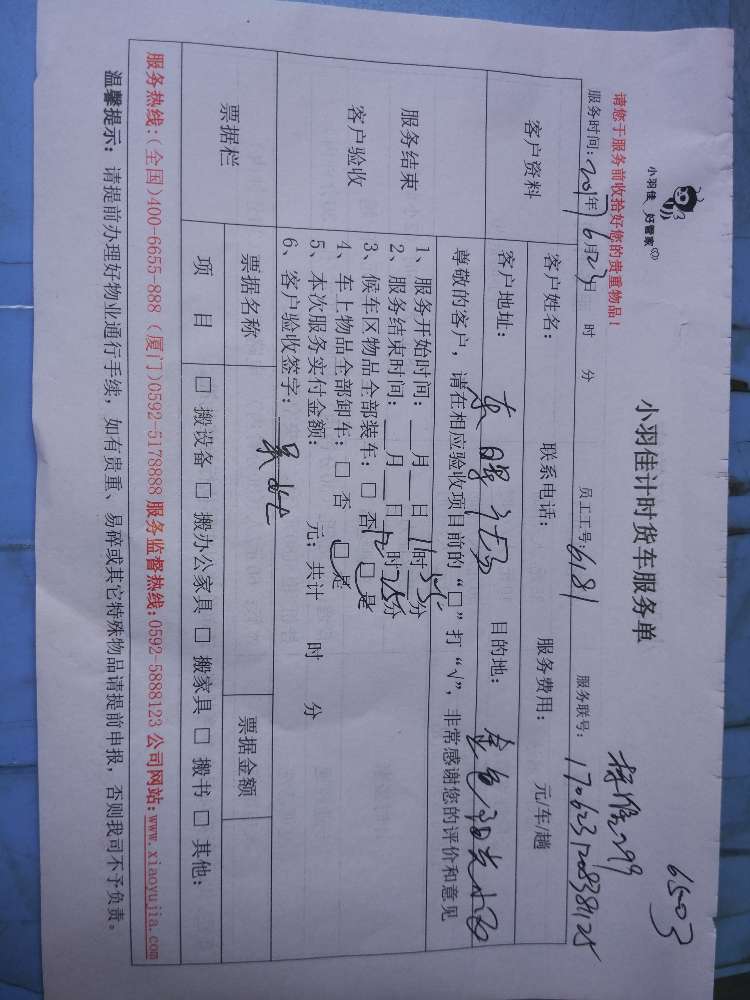 6503
小羽佳 好管家
小羽佳计时货车服务单
请您于服务前收拾好您的贵重物品！
服务时间：2017年6月23日 时 分 员工工号：6181 服务联号：170623120838425
客户资料
客户姓名： 联系电话： 服务费用： 元/车/趟
客户地址： 目的地：金色阳光小区
服务结束
客户验收
尊敬的客户，请在相应验收项目前的“□”打“√”，非常感谢您的评价和意见
1、服务开始时间：__月__日11时35分
2、服务结束时间：__月__日12时25分
3、候车区物品全部装车：□ 否 □ 是
4、车上物品全部卸车：□ 否 □ 是
5、本次服务实付金额： 元；共计 时 分
6、客户验收签字：
票据栏
票据名称 票据金额
项 目 □ 搬设备 □ 搬办公家具 □ 搬家具 □ 搬书 □ 其他：
服务热线：(全国)400-6655-888 (厦门)0592-5178888 服务监督热线：0592-5888123 公司网站：www.xiaoyujia.com
温馨提示：请提前办理好物业通行手续，如有贵重、易碎或其它特殊物品请提前申报，否则我司不予负责。